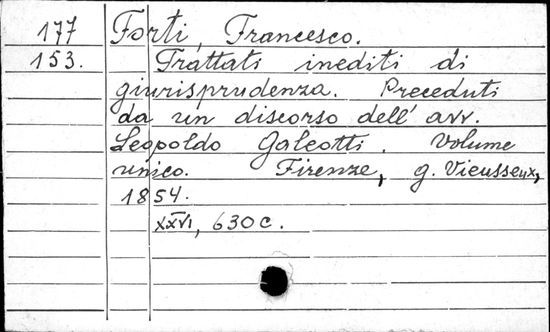 177 Forti, Francesco.
153. Trattati inediti di
giurisprudenza. Preceduti
da un discorso dell' avv.
Leopoldo Galeotti. Volume
unico. Firenze, g. Vieusseux,
1854.
XXVI, 630 c.